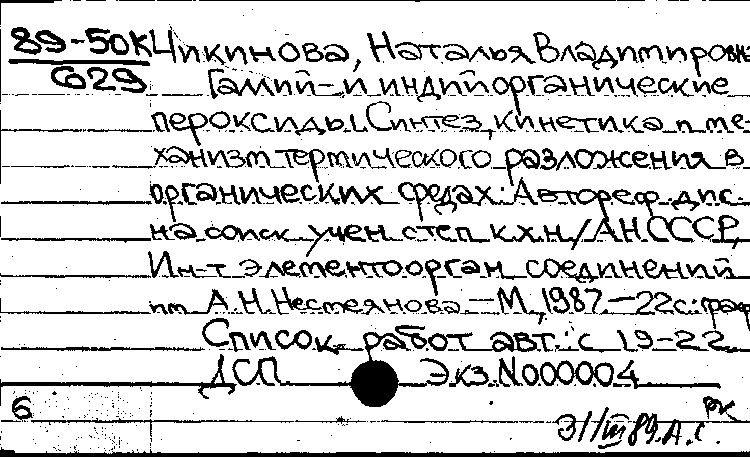 89-50К Чикинова, Наталья Владимировна
629 Галлий- и индийорганические
пероксиды. Синтез, кинетика и ме-
ханизм термического разложения в
органических средах: Автореф. дис.
на соиск. учен. степ. к.х.н./АН СССР,
Ин-т элементоорган. соединений
им. А.Н. Несмеянова. — М., 1987. — 22с.: граф.
Список работ авт.: с 19-22
ДСП. Экз. N000004
6
31/III 89. А.С.